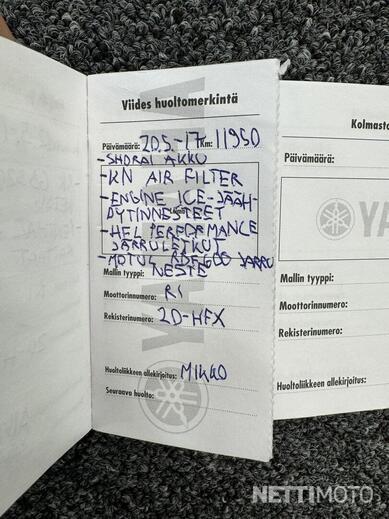 Viides huoltomerkintä
Päivämäärä: 20.5.-17 Km: 11950
-SHORAI AKKU
-KN AIR FILTER
-ENGINE ICE-JÄÄH-
DYTINNESTEET
-HEL PERFORMANCE
JARRULETKUT
-MOTUL RBF600 JARRU
NESTE
Mallin tyyppi:
Moottorinumero: R1
Rekisterinumero: 20-HFX
Huoltoliikkeen allekirjoitus: MIKKO
Seuraava huolto:
YAMAHA
Kolmasto
Päivämäärä:
YA
Mallin tyyppi:
Moottorinumero:
Rekisterinumero:
Huoltoliikkeen allekirjoitus:
NETTIMOTO